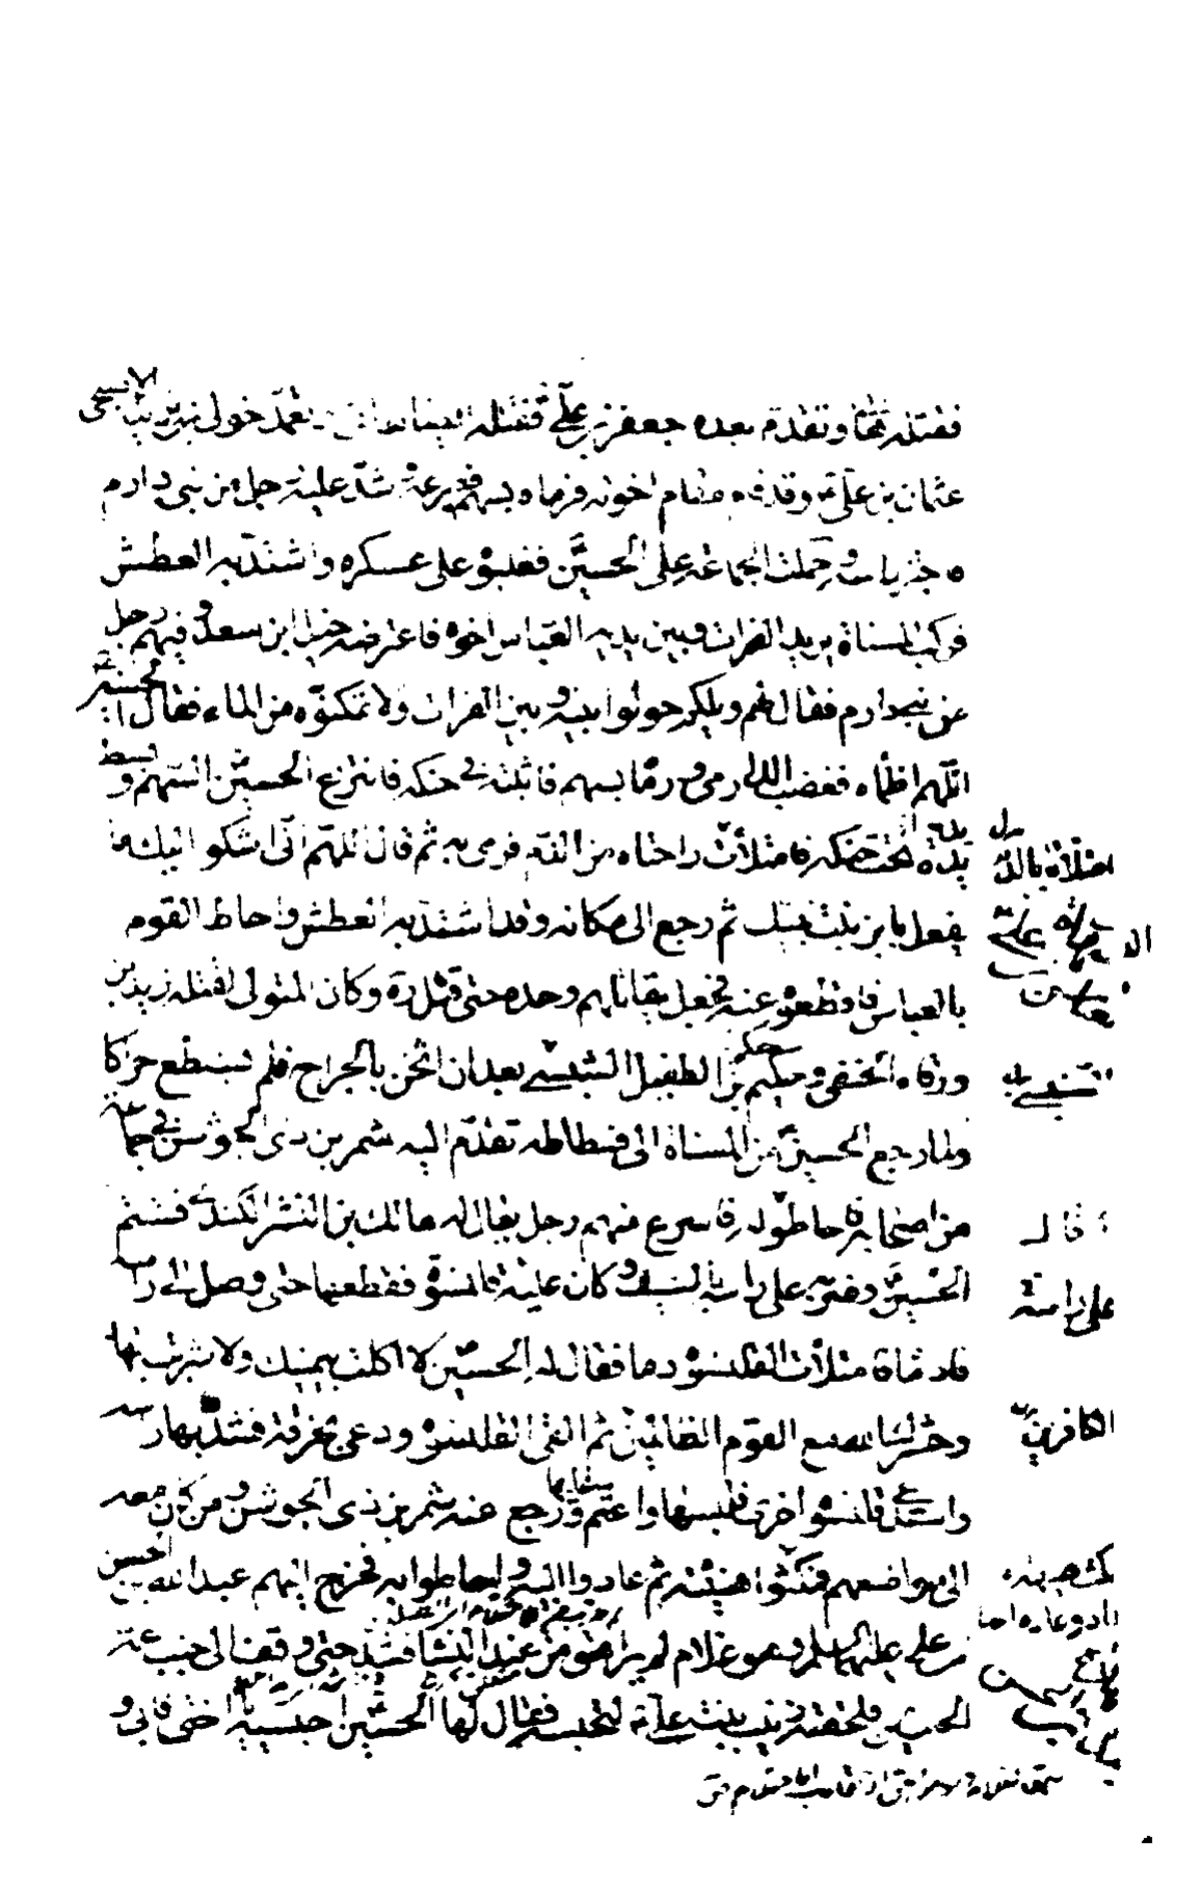 فقتله هانئ وتقدم بعده جعفر بن علي فقتله ايضا هانئ وتعمد خولى بن يزيد الاصبحى
عثمان بن على وقد قام مقام اخوته فرماه بسهم فصرعه شد عليه رجل من بنى دارم
فاحتز راسه وحملت الجماعة على الحسين فغلبوه على عسكره واشتد به العطش
فركب المسناة يريد الفرات وبين يديه العباس اخوه فاعترضه خيل ابن سعد وفيهم رجل
من بنى دارم فقال لهم ويلكم حولوا بينه وبين الفرات ولا تمكنوه من الماء فقال الحسين
اللهم اظمأه فغضب الدارمى ورماه بسهم فاثبته فى حنكه فانتزع الحسين السهم وبسط
يده تحت حنكه فامتلأت راحتاه من الدم فرمى به ثم قال اللهم انى اشكو اليك ما
يفعل بابن بنت نبيك ثم رجع الى مكانه وقد اشتد به العطش واحاط القوم
بالعباس فاقتطعوه عنه فجعل يقاتلهم وحده حتى قتل وكان المتولى لقتله زيد بن
ورقاء الحنفى وحكيم بن الطفيل السنبسى بعد ان اثخن بالجراح فلم يستطع حركا
ولما رجع الحسين من المسناة الى فسطاطه تقدم اليه شمر بن ذى الجوشن فى جماعة
من اصحابه فاحاطوا به فاسرع منهم رجل يقال له مالك بن النسر الكندى فشتم
الحسين وضربه على راسه بالسيف وكان عليه قلنسوة فقطعها حتى وصل الى راسه
فادماه فامتلأت القلنسوة دما فقال له الحسين لا اكلت بيمينك ولا شربت بها
وحشرك الله مع القوم الظالمين ثم القى القلنسوة ودعى بخرقة فشد بها راسه
واستدعى قلنسوة اخرى فلبسها واعتم عليها ورجع عنه شمر بن ذى الجوشن ومن كان معه
الى مواضعهم فمكثوا هنيئة ثم عادوا اليه واحاطوا به فخرج اليهم عبد الله بن الحسن
بن على عليهما السلم وهو غلام لم يراهق من عند النساء فشد حتى وقف الى جنب عمه
الحسين فلحقته زينب بنت على لتحبسه فقال لها الحسين احبسيه يا اختى فابى و
على راسه
الكافرين